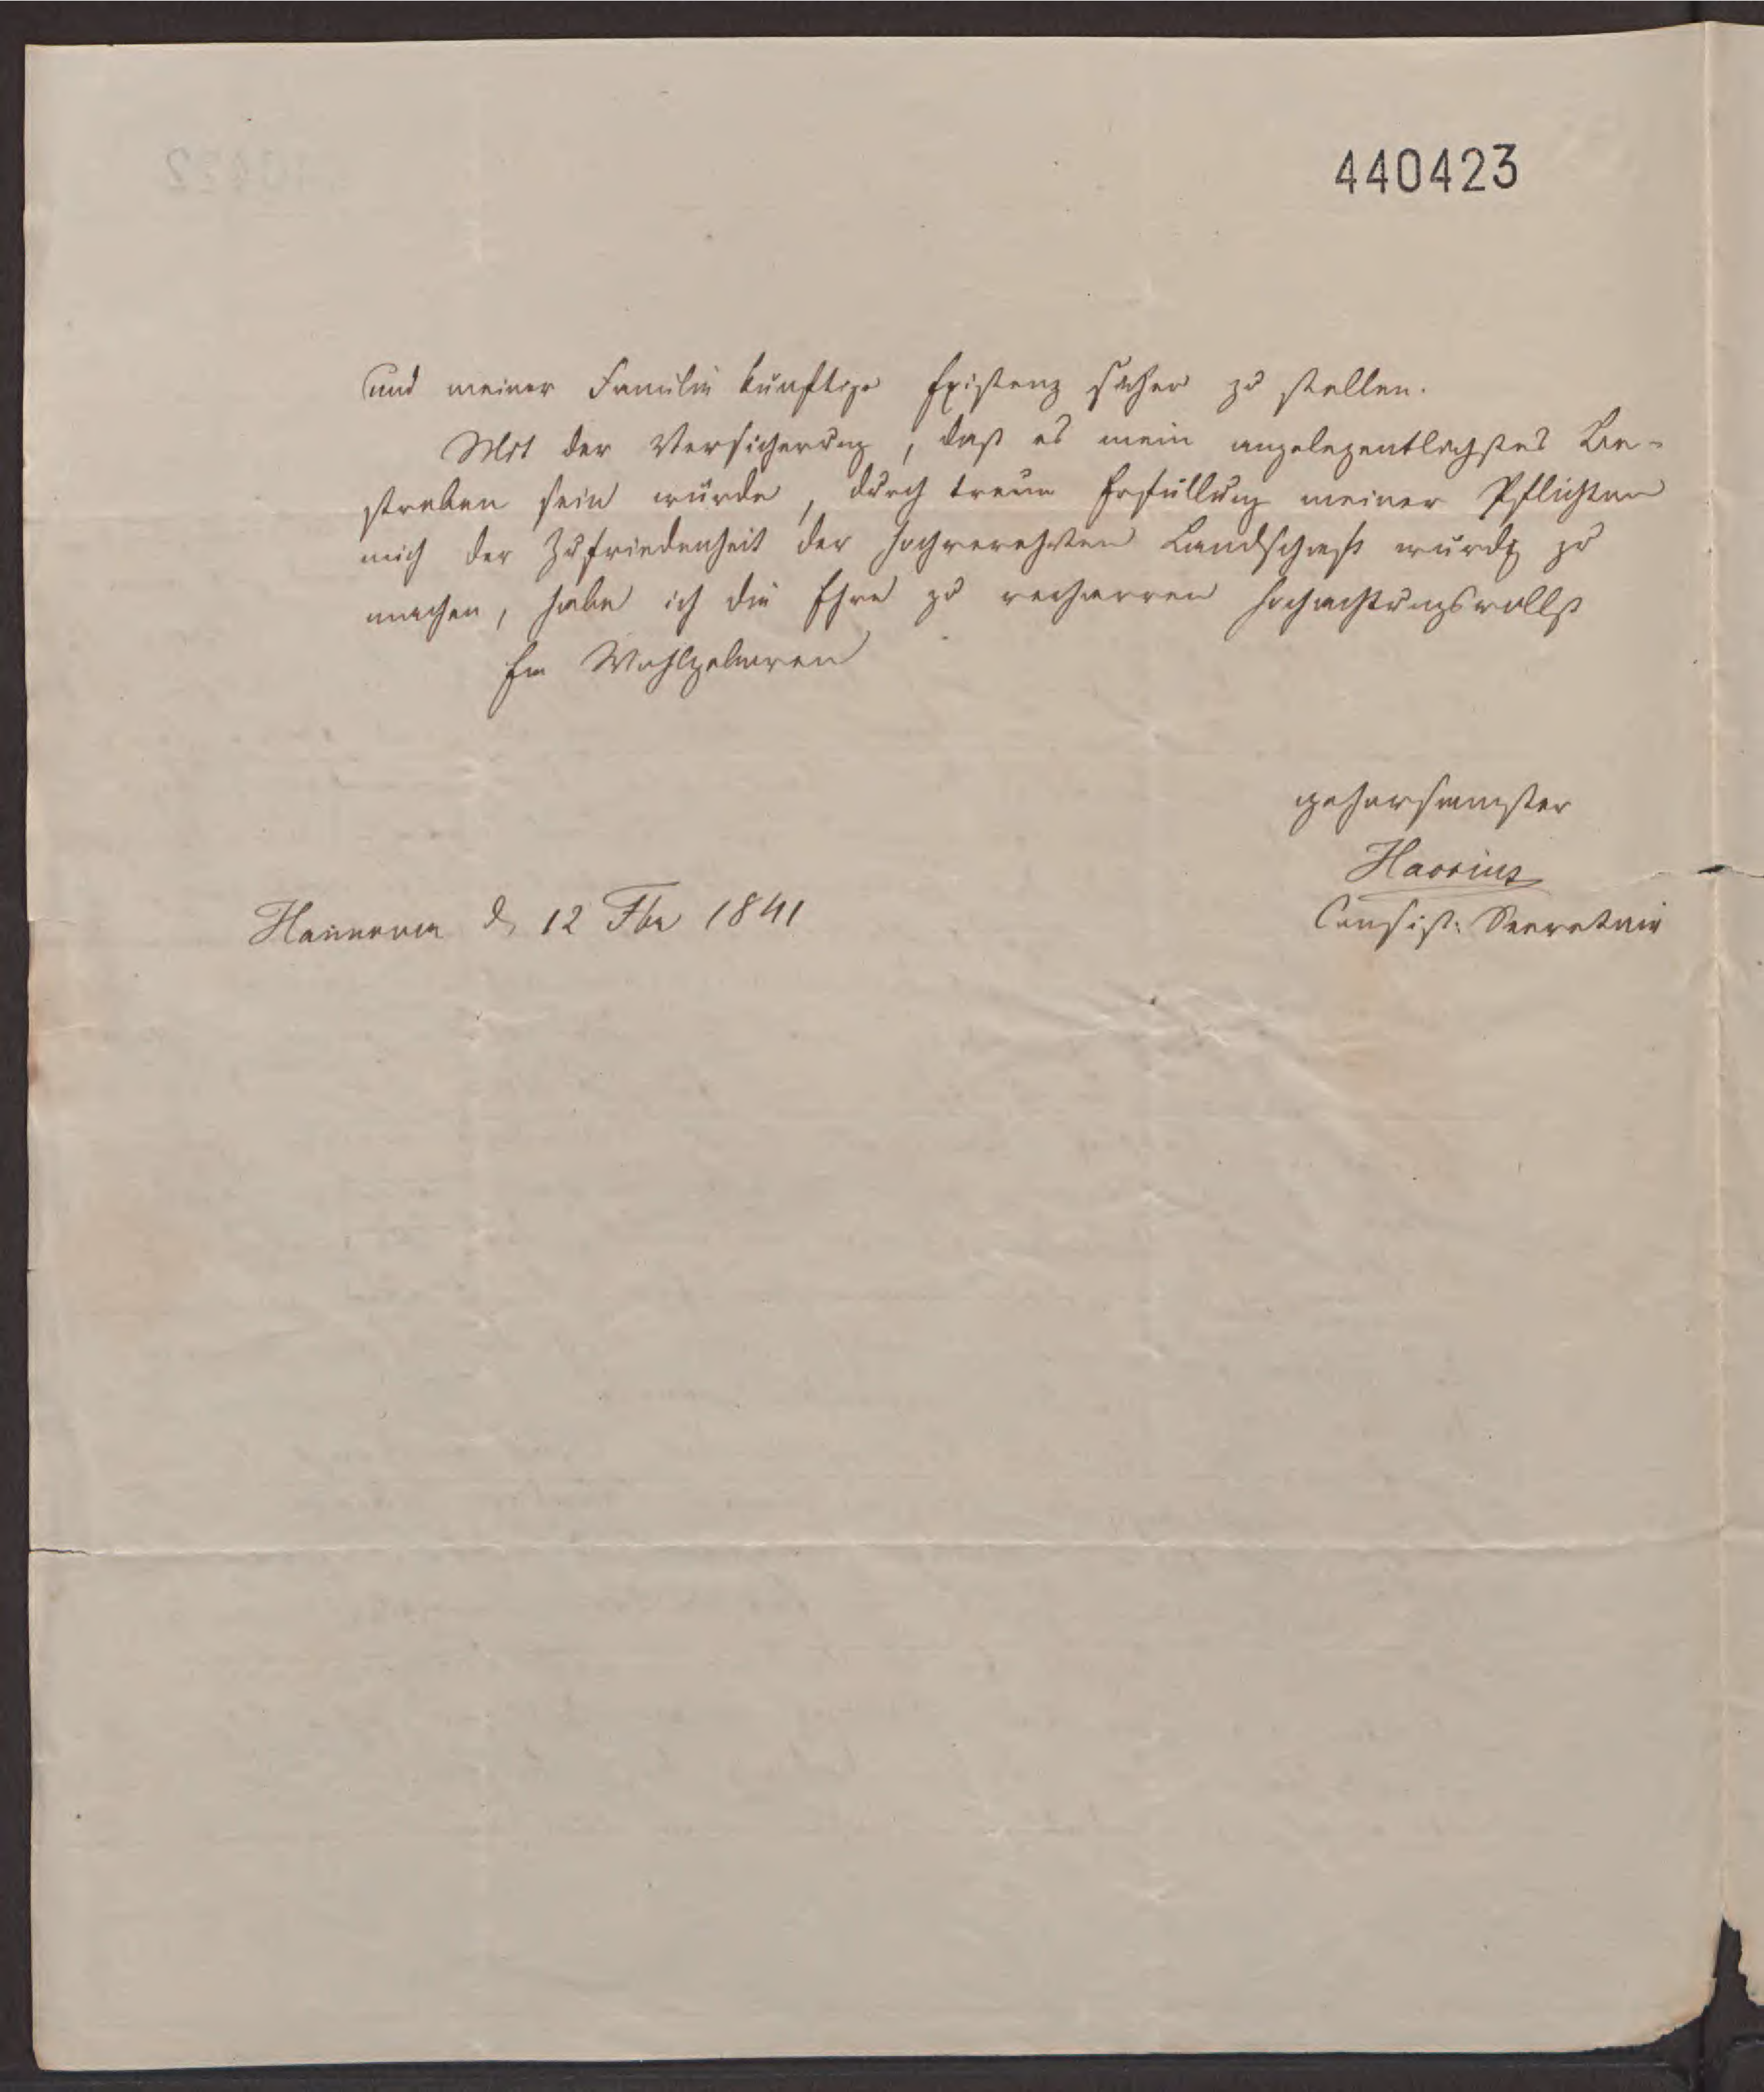 440423
und meiner Familie künftige Existenz sicher zu stellen.
Mit der Versicherung, daß es mein angelegentlichstes Be-
streben sein würde, durch treue Erfüllung meiner Pflichten
mich der Zufriedenheit der hochverehrten Landschaft würdig zu
machen, habe ich die Ehre zu verharren hochachtungsvollst
Ew Wohlgeboren
gehorsamster
Consist: Secretair
Hannover d 12 1841